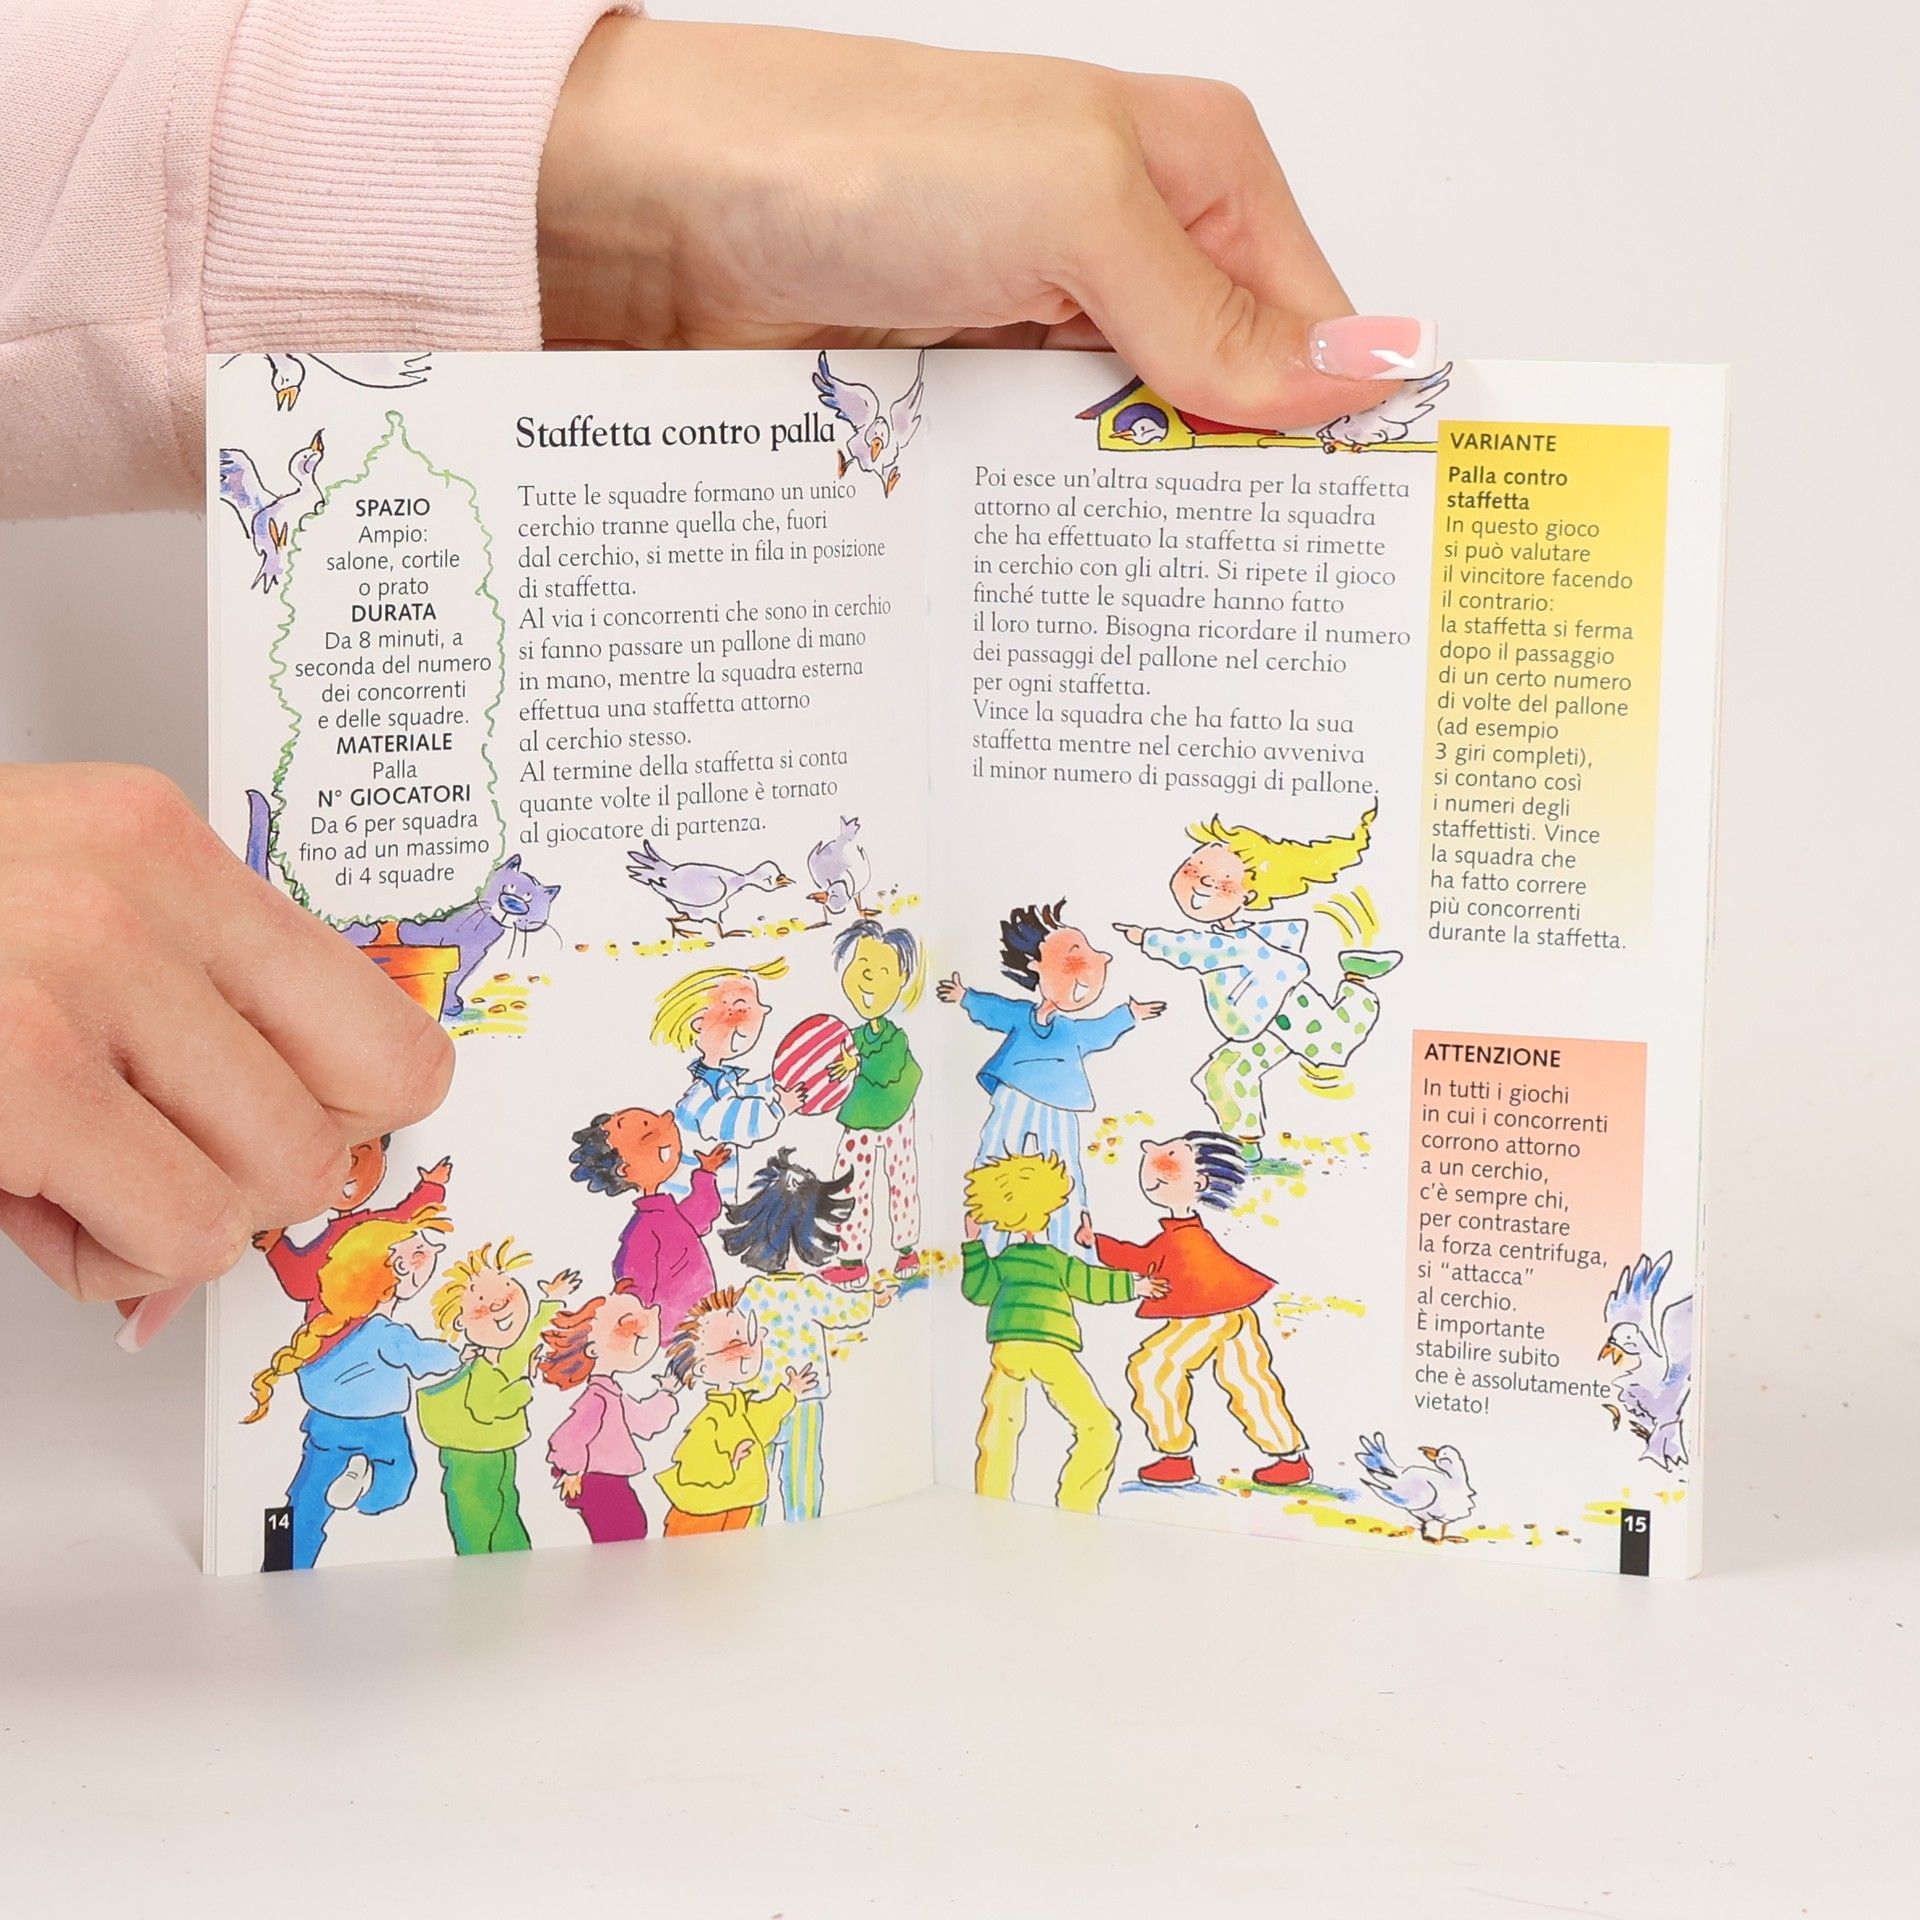 Staffetta contro palla
SPAZIO
Ampio:
salone, cortile
o prato
DURATA
Da 8 minuti, a
seconda del numero
dei concorrenti
e delle squadre.
MATERIALE
Palla
N° GIOCATORI
Da 6 per squadra
fino ad un massimo
di 4 squadre
Tutte le squadre formano un unico
cerchio tranne quella che, fuori
dal cerchio, si mette in fila in posizione
di staffetta.
Al via i concorrenti che sono in cerchio
si fanno passare un pallone di mano
in mano, mentre la squadra esterna
effettua una staffetta attorno
al cerchio stesso.
Al termine della staffetta si conta
quante volte il pallone è tornato
al giocatore di partenza.
14
Poi esce un'altra squadra per la staffetta
attorno al cerchio, mentre la squadra
che ha effettuato la staffetta si rimette
in cerchio con gli altri. Si ripete il gioco
finché tutte le squadre hanno fatto
il loro turno. Bisogna ricordare il numero
dei passaggi del pallone nel cerchio
per ogni staffetta.
Vince la squadra che ha fatto la sua
staffetta mentre nel cerchio avveniva
il minor numero di passaggi di pallone.
VARIANTE
Palla contro
staffetta
In questo gioco
si può valutare
il vincitore facendo
il contrario:
la staffetta si ferma
dopo il passaggio
di un certo numero
di volte del pallone
(ad esempio
3 giri completi),
si contano così
i numeri degli
staffettisti. Vince
la squadra che
ha fatto correre
più concorrenti
durante la staffetta.
ATTENZIONE
In tutti i giochi
in cui i concorrenti
corrono attorno
a un cerchio,
c'è sempre chi,
per contrastare
la forza centrifuga,
si "attacca"
al cerchio.
È importante
stabilire subito
che è assolutamente
vietato!
15